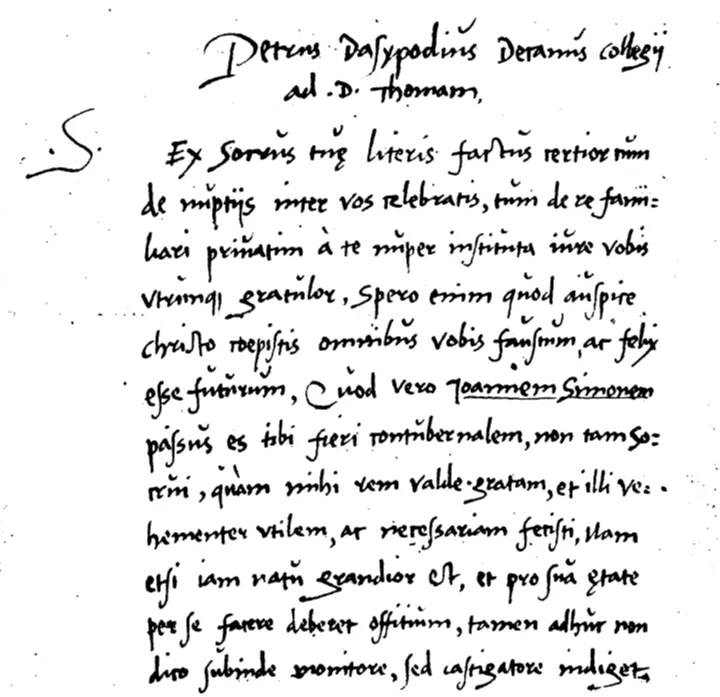 Petrus Dasypodius Decanus collegij
ad .D. Thomam,
.S.
Ex Socrus tuę literis factus certior cum
de nuptijs inter vos celebratis, tum de re fami=
liari privatim à te nuper instituta iure vobis
vtrinq; gratulor, Spero enim quod auspice
christo coepistis omnibus vobis faustum, ac felix
esse futurum, Quod vero Joannem Simonem
passus es tibi fieri contubernalem, non tam so=
crui, quàm mihi rem valde gratam, et illi ve=
hementer vtilem, ac necessariam fecisti, Nam
etsi iam natu grandior est, et pro sua ętate
per se facere deberet offitium, tamen adhuc non
dico subinde monitore, sed castigatore indiget,